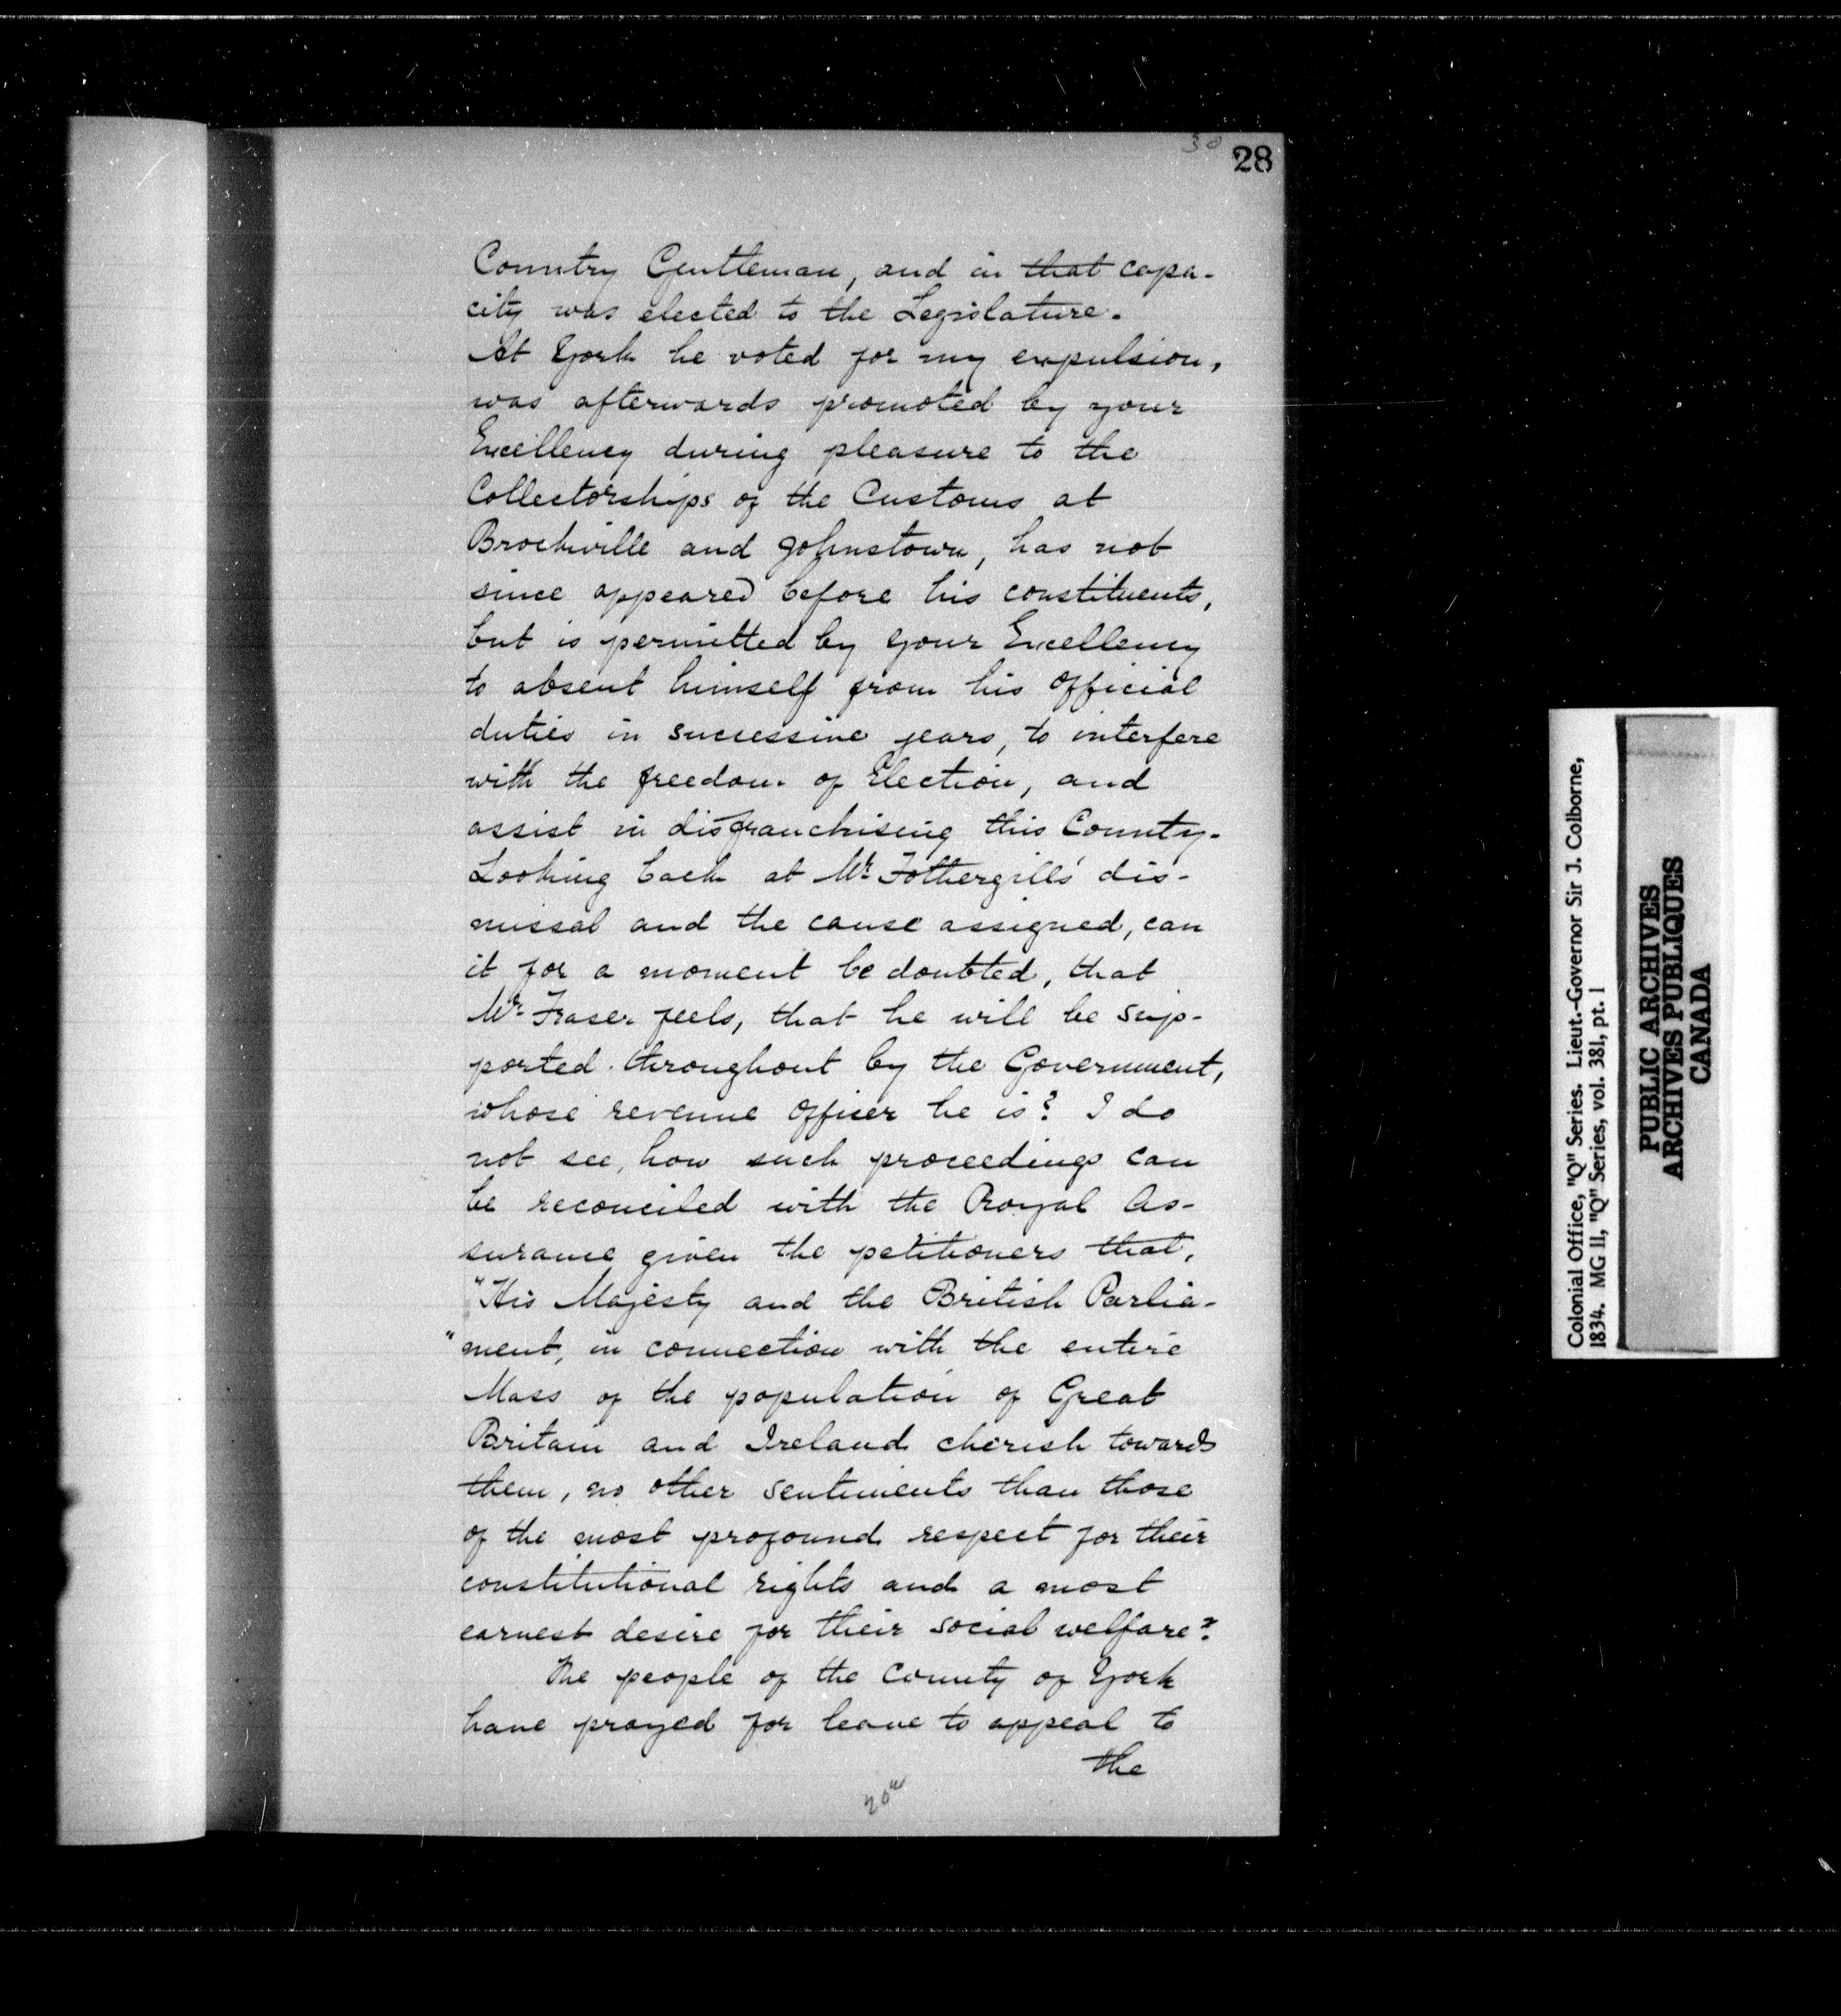 30
28
Country Gentleman, and in that capa-
city was elected to the Legislature.
At York he voted for my expulsion,
was afterwards promoted by your
Excellency during pleasure to the
Collectorships of the Customs at
Brockville and Johnstown, has not
since appeared before his constituents,
but is permitted by your Excellency
to absent himself from his official
duties in successive years, to interfere
with the freedom of Election, and
assist in disfranchising this County.
Looking back at Mr Fothergill's dis-
missal and the cause assigned, can
it for a moment be doubted, that
Mr Fraser feels, that he will be sup-
ported throughout by the Government,
whose revenue officer he is? I do
not see, how such proceedings can
be reconciled with the Royal As-
surance given the petitioners that,
"His Majesty and the British Parlia-
"ment, in connection with the entire
Mass of the population of Great
Britain and Ireland cherish towards
them, no other sentiments than those
of the most profound respect for their
constitutional rights and a most
earnest desire for their social welfare?
The people of the County of York
have prayed for leave to appeal to
the
Colonial Office, "Q" Series. Lieut.-Governor Sir J. Colborne,
1834. MG 11, "Q" Series, vol. 381, pt. 1
PUBLIC ARCHIVES
ARCHIVES PUBLIQUES
CANADA